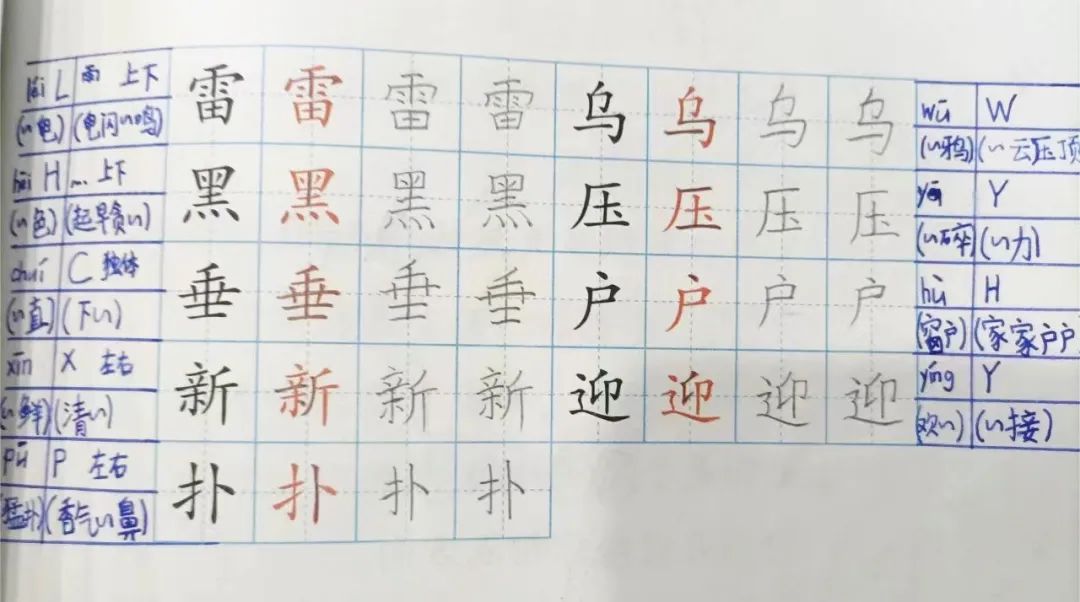 léi L 雨 上下 雷 雷 雷 雷 乌 乌 乌 乌 wū W
(~电) (电闪~鸣) (~鸦) (~云压顶
hēi H 灬 上下 黑 黑 黑 黑 压 压 压 压 yā Y
(~色) (起早贪~) (~碎) (~力)
chuí C 独体 垂 垂 垂 垂 户 户 户 户 hù H
(~直) (下~) (窗户) (家家户户
xīn X 左右 新 新 新 新 迎 迎 迎 迎 yíng Y
(~鲜) (清~) (欢~) (~接)
pū P 左右 扑 扑 扑 扑
猛扑) (香气~鼻)